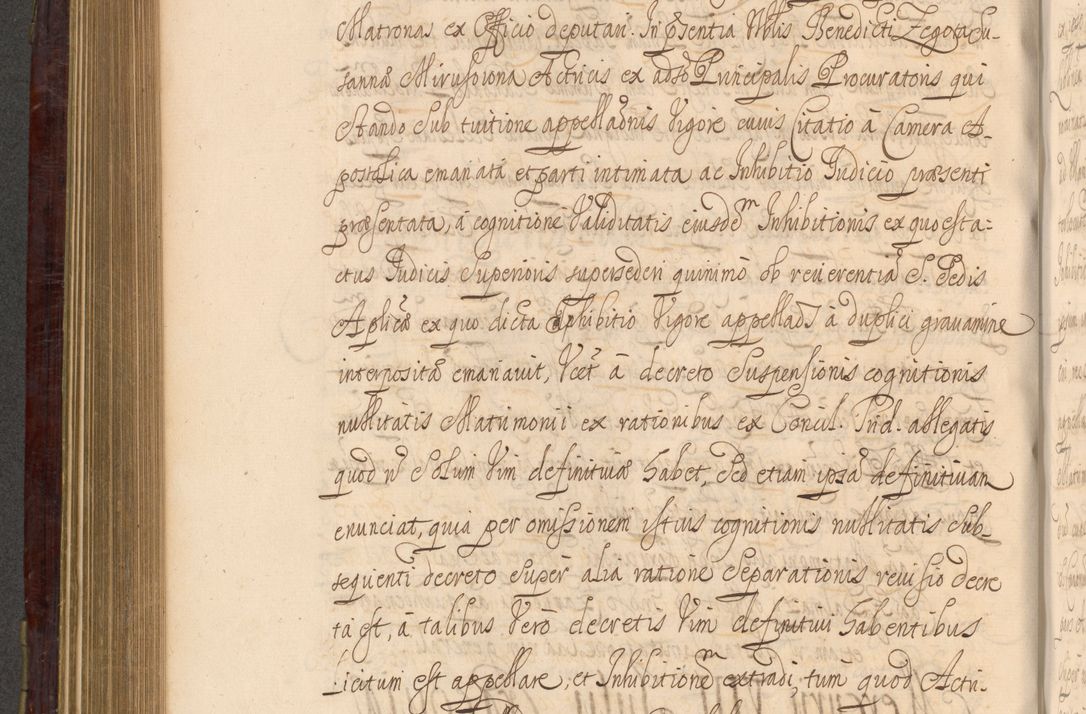 Matronas ex Officio deputari. In pŝentia Nblis Benedicti Zegota Su-
sannæ Mirusiona Actricis ex adŝo Principalis Procuratoris qui
Stando Sub tuitione appellaōnis Vigore cuius Citatio à Camera A-
postolica emanata et parti intimata ac Inhibitio Iudicio præsenti
præsentata, à cognitione Validitatis eiusdem Inhibitionis ex quo est a-
ctus Iudicis Superioris supersederi quinimo ob reuerentiã S. Sedis
Aplicæ ex quo dicta Inhibitio Vigore appellaōs à duplici grauamine
interpositæ emanauit, Vcet à decreto Suspensionis cognitionis
nullitatis Matrimonii ex rationibus ex Concil. Trid. allegatis
quod n̄ Solum Vim definitiuã habet, Sed etiam ipsã definitiuam
enunciat, quia per omissionem istius cognitionis nullitatis Sub-
sequenti decreto Super alia ratione Separationis reuisio decre
ta est, à talibus Vero decretis Vim definitiui habentibus
licitum est appellare, et Inhibitionem extradi, tum quod Actri-